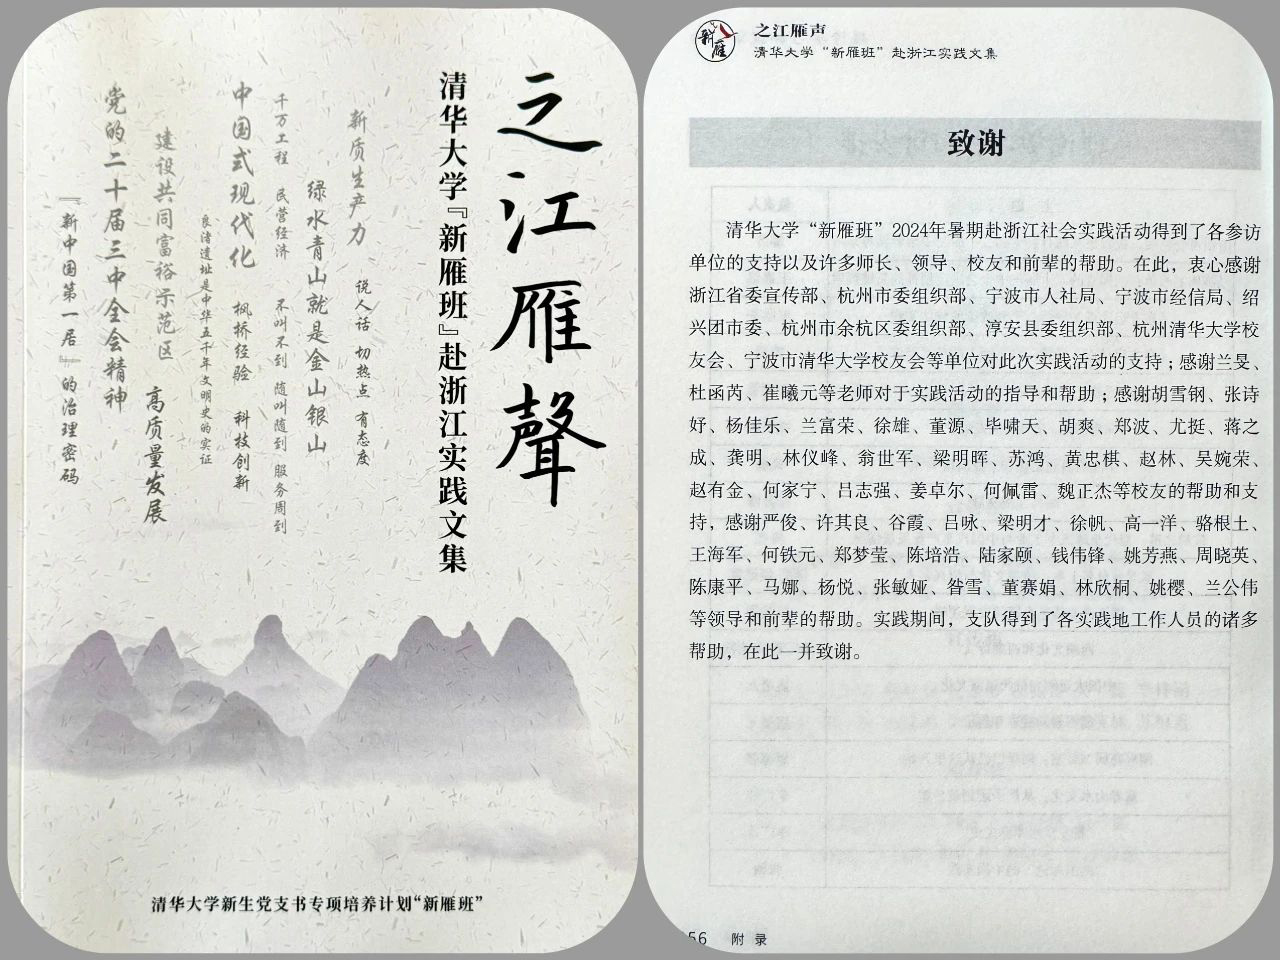 之江雁聲
清华大学『新雁班』赴浙江实践文集
新质生产力
说人话 切热点 有态度
绿水青山就是金山银山
千万工程 民营经济 不叫不到 随叫随到 服务周到
中国式现代化 枫桥经验 科技创新
良渚遗址是中华五千年文明史的实证
建设共同富裕示范区
高质量发展
党的二十届三中全会精神
『新中国第一居』的治理密码
清华大学新生党支书专项培养计划“新雁班”
新雁
之江雁声
清华大学“新雁班”赴浙江实践文集
致谢
清华大学“新雁班”2024年暑期赴浙江社会实践活动得到了各参访
单位的支持以及许多师长、领导、校友和前辈的帮助。在此，衷心感谢
浙江省委宣传部、杭州市委组织部、宁波市人社局、宁波市经信局、绍
兴团市委、杭州市余杭区委组织部、淳安县委组织部、杭州清华大学校
友会、宁波市清华大学校友会等单位对此次实践活动的支持；感谢兰旻、
杜函芮、崔曦元等老师对于实践活动的指导和帮助；感谢胡雪钢、张诗
妤、杨佳乐、兰富荣、徐雄、董源、毕啸天、胡爽、郑波、尤挺、蒋之
成、龚明、林仪峰、翁世军、梁明晖、苏鸿、黄忠棋、赵林、吴婉荣、
赵有金、何家宁、吕志强、姜卓尔、何佩雷、魏正杰等校友的帮助和支
持，感谢严俊、许其良、谷霞、吕咏、梁明才、徐帆、高一洋、骆根土、
王海军、何铁元、郑梦莹、陈培浩、陆家颐、钱伟锋、姚芳燕、周晓英、
陈康平、马娜、杨悦、张敏娅、昝雪、董赛娟、林欣桐、姚樱、兰公伟
等领导和前辈的帮助。实践期间，支队得到了各实践地工作人员的诸多
帮助，在此一并致谢。
56 附 录